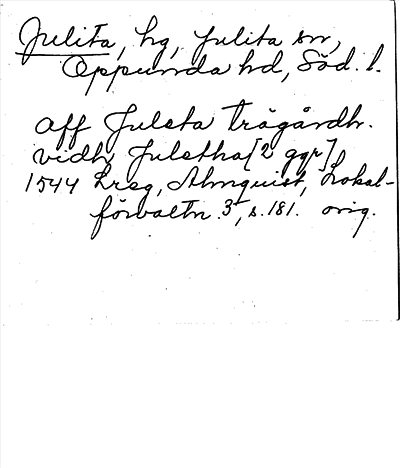 Julita, hg, Julita sn,
Oppunda hd, Söd. l.
aff Julsta trägårdh.
vidh Julstha [2 ggr]
1544 Lreg, Almquist, Lokal-
förvaltn. 3, s. 181. orig.